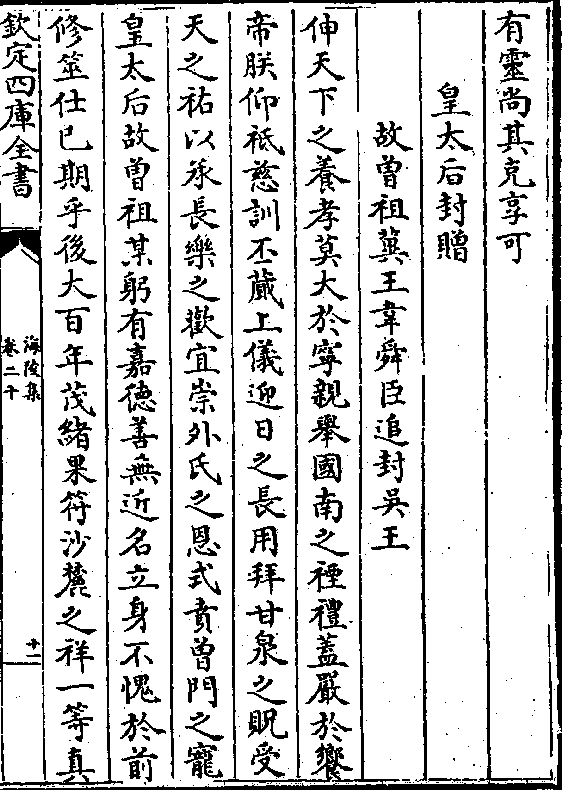 有靈尚其克享可
皇太后封贈
故曾祖冀王韋舜臣追封吳王
伸天下之養孝莫大於寧親舉國南之禋禮蓋嚴於饗
帝朕仰祗慈訓丕蕆上儀迎日之長用拜甘泉之貺受
天之祐以承長樂之歡宜崇外氏之恩式賁曾門之寵
皇太后故曾祖某躬有嘉德善無近名立身不愧於前
修筮仕已期乎後大百年茂緒果符沙麓之祥一等真
欽定四庫全書
海陵集
卷二十
十一